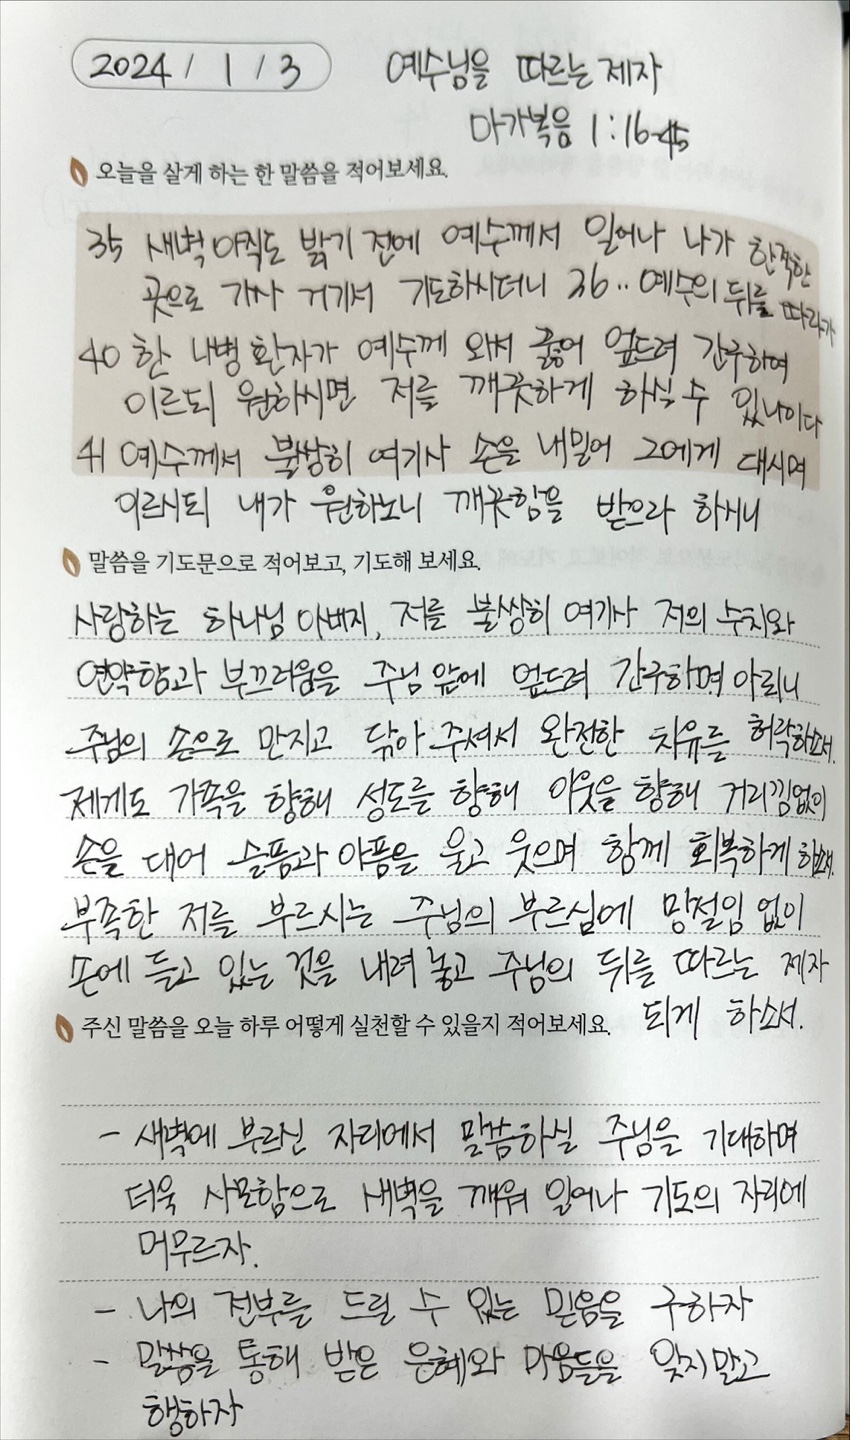 2024 / 1 / 3 예수님을 따르는 제자
마가복음 1:16-45
오늘을 살게 하는 한 말씀을 적어보세요.
35 새벽 아직도 밝기 전에 예수께서 일어나 나가 한적한
곳으로 가사 거기서 기도하시더니 36.. 예수의 뒤를 따라가
40 한 나병 환자가 예수께 와서 꿇어 엎드려 간구하여
이르되 원하시면 저를 깨끗하게 하실 수 있나이다
41 예수께서 불쌍히 여기사 손을 내밀어 그에게 대시며
이르시되 내가 원하노니 깨끗함을 받으라 하시니
말씀을 기도문으로 적어보고, 기도해 보세요.
사랑하는 하나님 아버지, 저를 불쌍히 여기사 저의 수치와
연약함과 부끄러움을 주님 앞에 엎드려 간구하며 아뢰니
주님의 손으로 만지고 닦아 주셔서 완전한 치유를 허락하소서.
제게도 가족을 향해 성도를 향해 이웃을 향해 거리낌없이
손을 대어 슬픔과 아픔을 울고 웃으며 함께 회복하게 하소서.
부족한 저를 부르시는 주님의 부르심에 망설임 없이
손에 들고 있는 것을 내려 놓고 주님의 뒤를 따르는 제자
되게 하소서.
주신 말씀을 오늘 하루 어떻게 실천할 수 있을지 적어보세요.
- 새벽에 부르신 자리에서 말씀하실 주님을 기대하며
더욱 사모함으로 새벽을 깨워 일어나 기도의 자리에
머무르자.
- 나의 전부를 드릴 수 있는 믿음을 구하자
- 말씀을 통해 받은 은혜와 마음들을 잊지말고
행하자